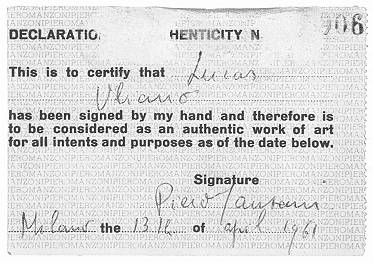 DECLARATIO HENTICITY N 06
This is to certify that Lucas
Uliano
has been signed by my hand and therefore is
to be considered as an authentic work of art
for all intents and purposes as of the date below.
Signature
Piero Manzoni
Milano the 13th of april 1961